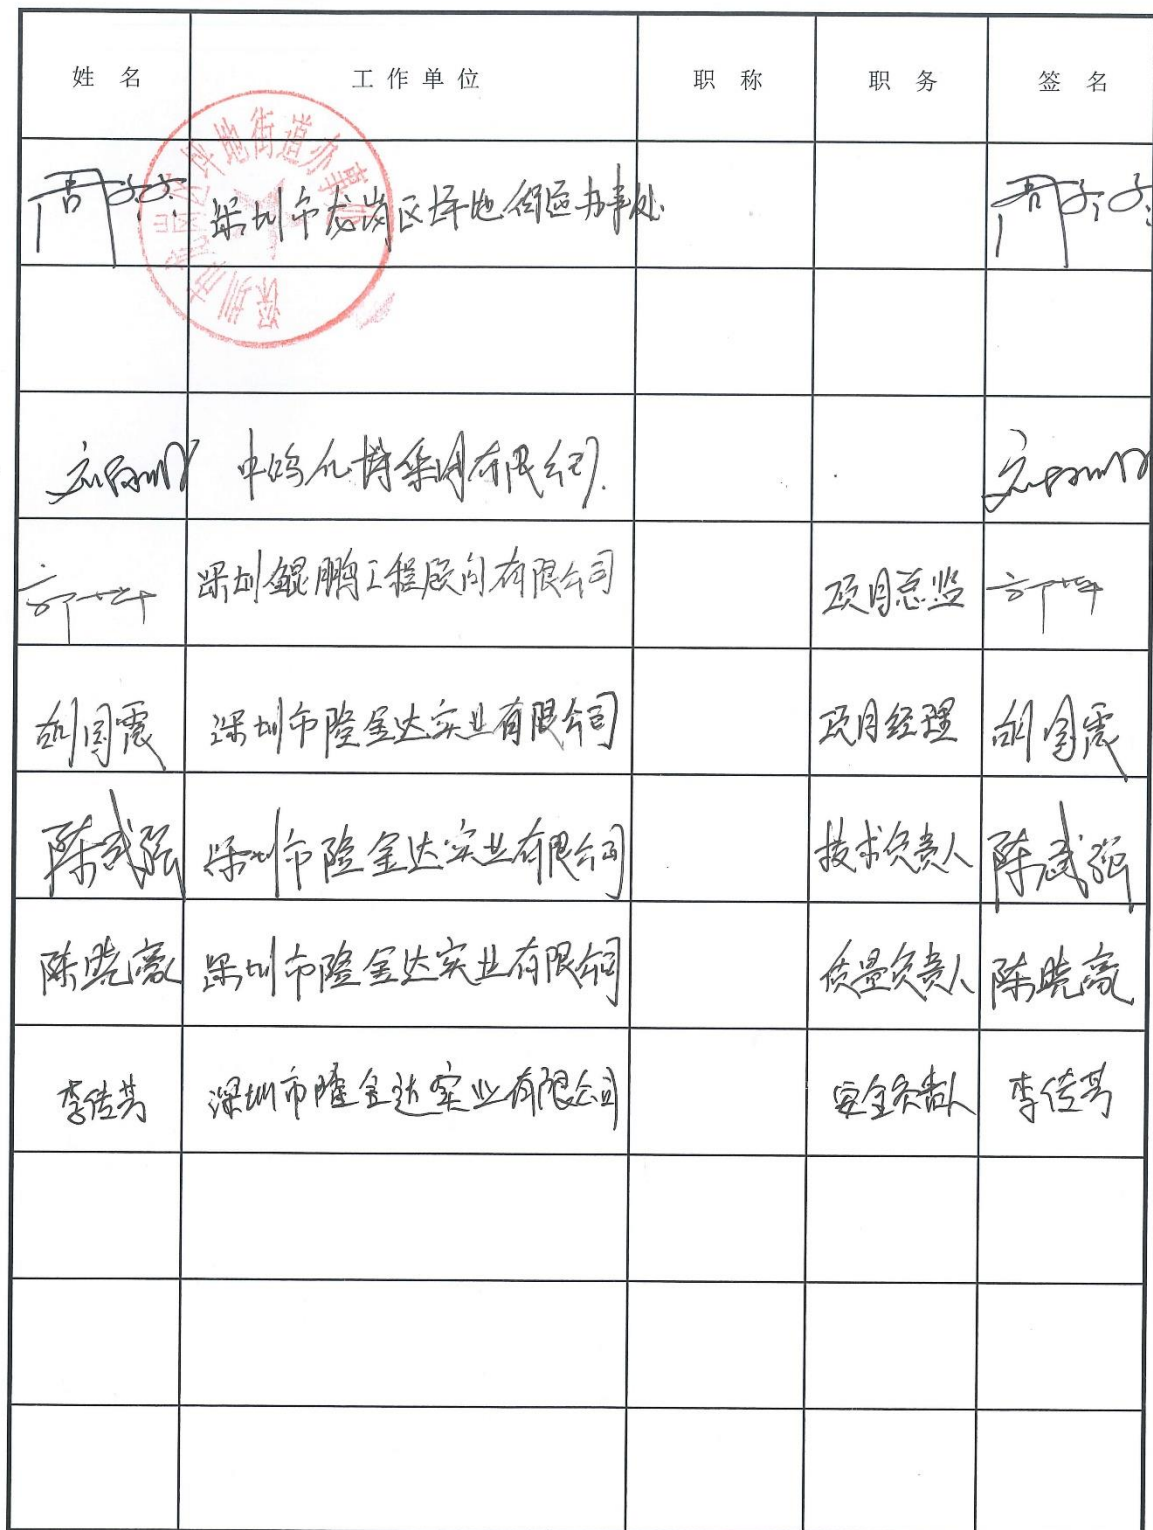 姓 名 工作单位 职 称 职 务 签 名
深圳市龙岗区坪地街道办事处
深圳市龙岗区坪地街道办事处
有限公司
深圳鲲鹏工程顾问有限公司 项目总监
胡国震 深圳市隆金达实业有限公司 项目经理 胡国震
陈武强 深圳市隆金达实业有限公司 技术负责人 陈武强
陈晓豪 深圳市隆金达实业有限公司 质量负责人 陈晓豪
李传芳 深圳市隆金达实业有限公司 安全负责人 李传芳